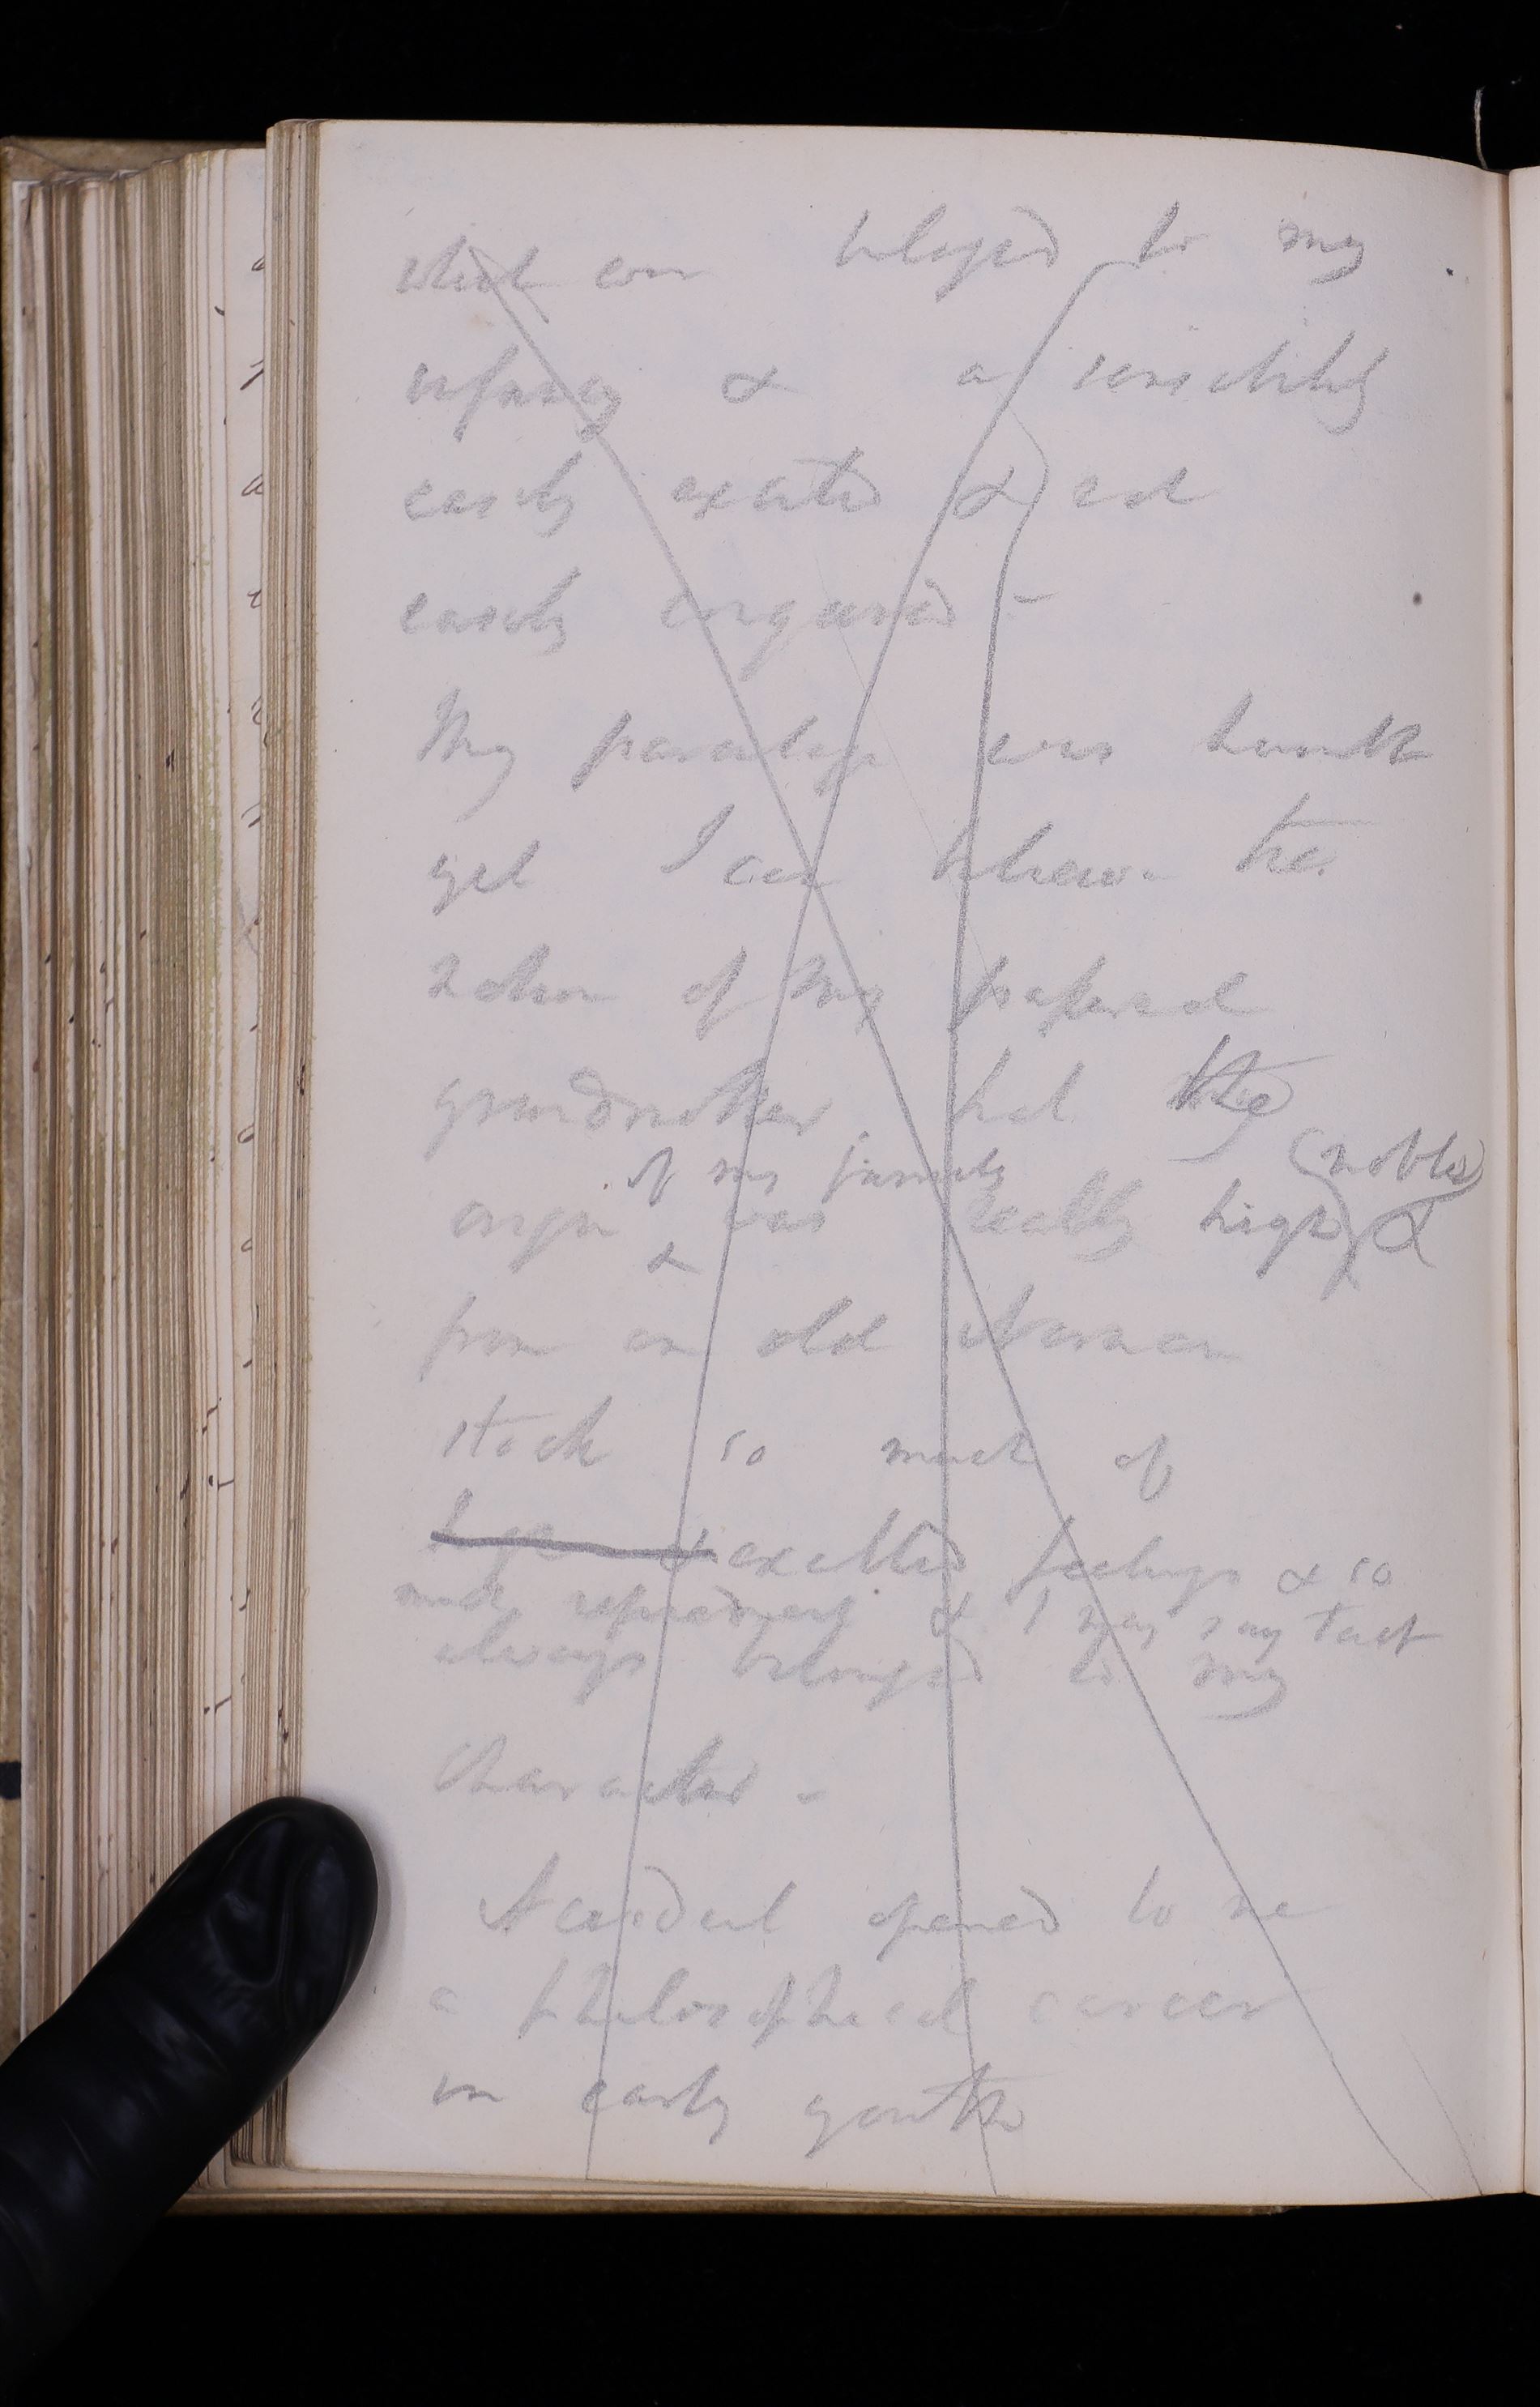 which even belonged to my
infancy & a sensibility
easily excited & not
easily conquered -
My parentage was humble
yet I can believe the
notion of my paternal
grandmother that the
origin of my family was really high (noble) &
from an old Norman
stock so much of
& exalted feelings & so
much refinement & I may say tact
always belonged to my
Character -
Accident opened to me
a philosophical career
in early youth